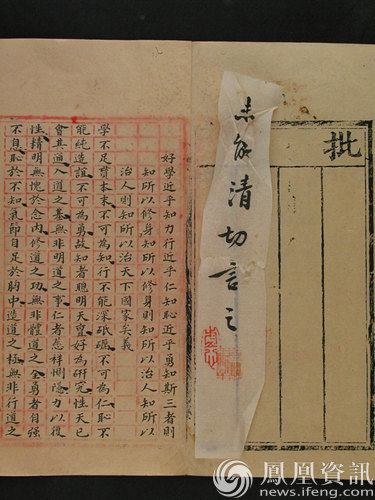 批
未能清切言之
好學近乎知力行近乎仁知恥近乎勇知斯三者則
知所以修身知所以修身則知所以治人知所以
治人則知所以治天下國家矣義
學不足本末不可為知行不能深砥礪不可為仁恥不
能純造誼不可為勇故知者聰明天亶好為研究性天已
會其通入道之基無非明道之事仁者慈祥惻隱力以復
性精明無愧於念內修道之功無非體道之全勇者自強
不息恥於不知氣節自足於胸中造道之極無非行道之
鳳凰資訊
news.ifeng.com